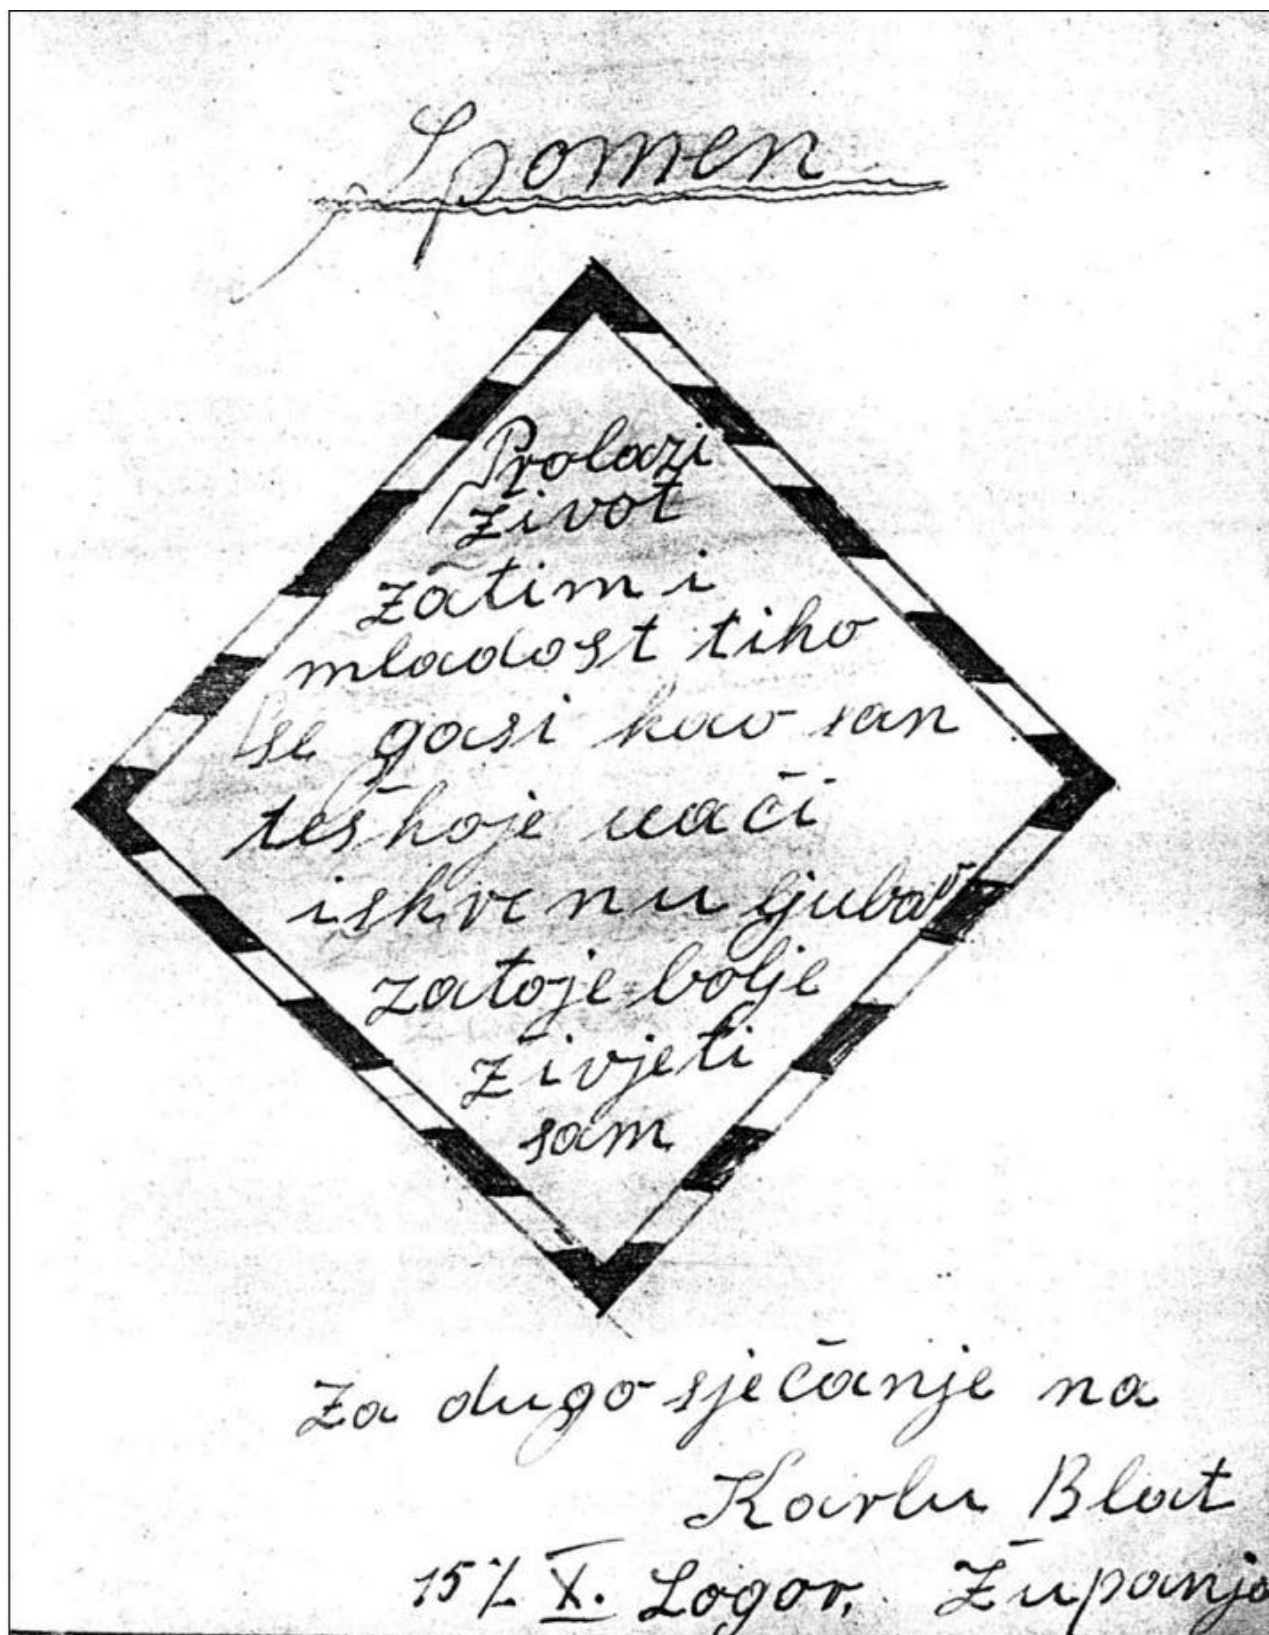 Spomen
Prolazi
život
zatim i
mladost tiho
se gasi kao san
teškoje naći
iskrenu ljubav
zatoje bolje
živjeti
sam
Za dugo sječanje na
Karlu Blat
15/ X. Logor, Županja